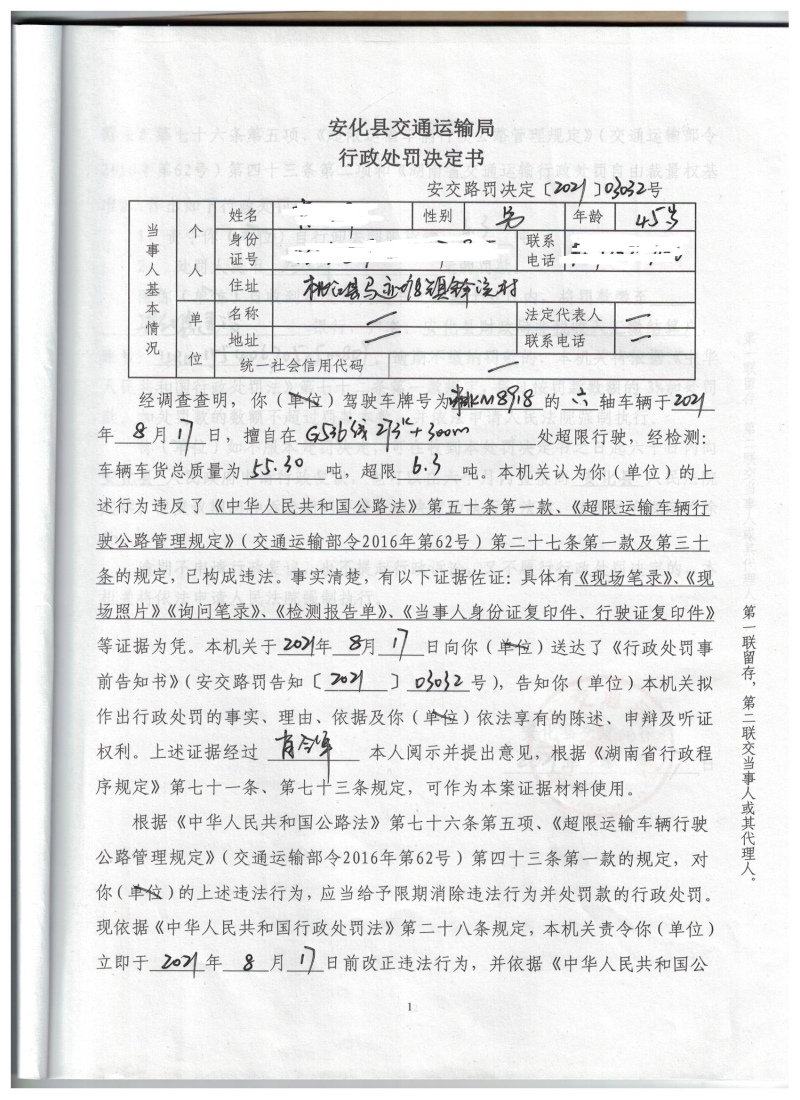 安化县交通运输局
行政处罚决定书
安交路罚决定〔2021〕03032号
当事人基本情况
个人
姓名 性别 男 年龄 45岁
身份证号 联系电话
住址 桃江县马迹塘镇 村
单位
名称 法定代表人
地址 联系电话
统一社会信用代码
经调查查明，你（单位）驾驶车牌号为湘KM8918的 六 轴车辆于2021
年 8 月 17 日，擅自在 G536线273K+300m 处超限行驶，经检测：
车辆车货总质量为 55.30 吨，超限 6.3 吨。本机关认为你（单位）的上
述行为违反了《中华人民共和国公路法》第五十条第一款、《超限运输车辆行
驶公路管理规定》（交通运输部令2016年第62号）第二十七条第一款及第三十
条的规定，已构成违法。事实清楚，有以下证据佐证：具体有《现场笔录》、《现
场照片》《询问笔录》、《检测报告单》、《当事人身份证复印件、行驶证复印件》
等证据为凭。本机关于2021年 8月 17 日向你（单位）送达了《行政处罚事
前告知书》（安交路罚告知〔 2021 〕03032号），告知你（单位）本机关拟
作出行政处罚的事实、理由、依据及你（单位）依法享有的陈述、申辩及听证
权利。上述证据经过 本人阅示并提出意见，根据《湖南省行政程
序规定》第七十一条、第七十三条规定，可作为本案证据材料使用。
根据《中华人民共和国公路法》第七十六条第五项、《超限运输车辆行驶
公路管理规定》（交通运输部令2016年第62号）第四十三条第一款的规定，对
你（单位）的上述违法行为，应当给予限期消除违法行为并处罚款的行政处罚。
现依据《中华人民共和国行政处罚法》第二十八条规定，本机关责令你（单位）
立即于 2021 年 8 月 17 日前改正违法行为，并依据《中华人民共和国公
1
第一联留存，第二联交当事人或其代理人。